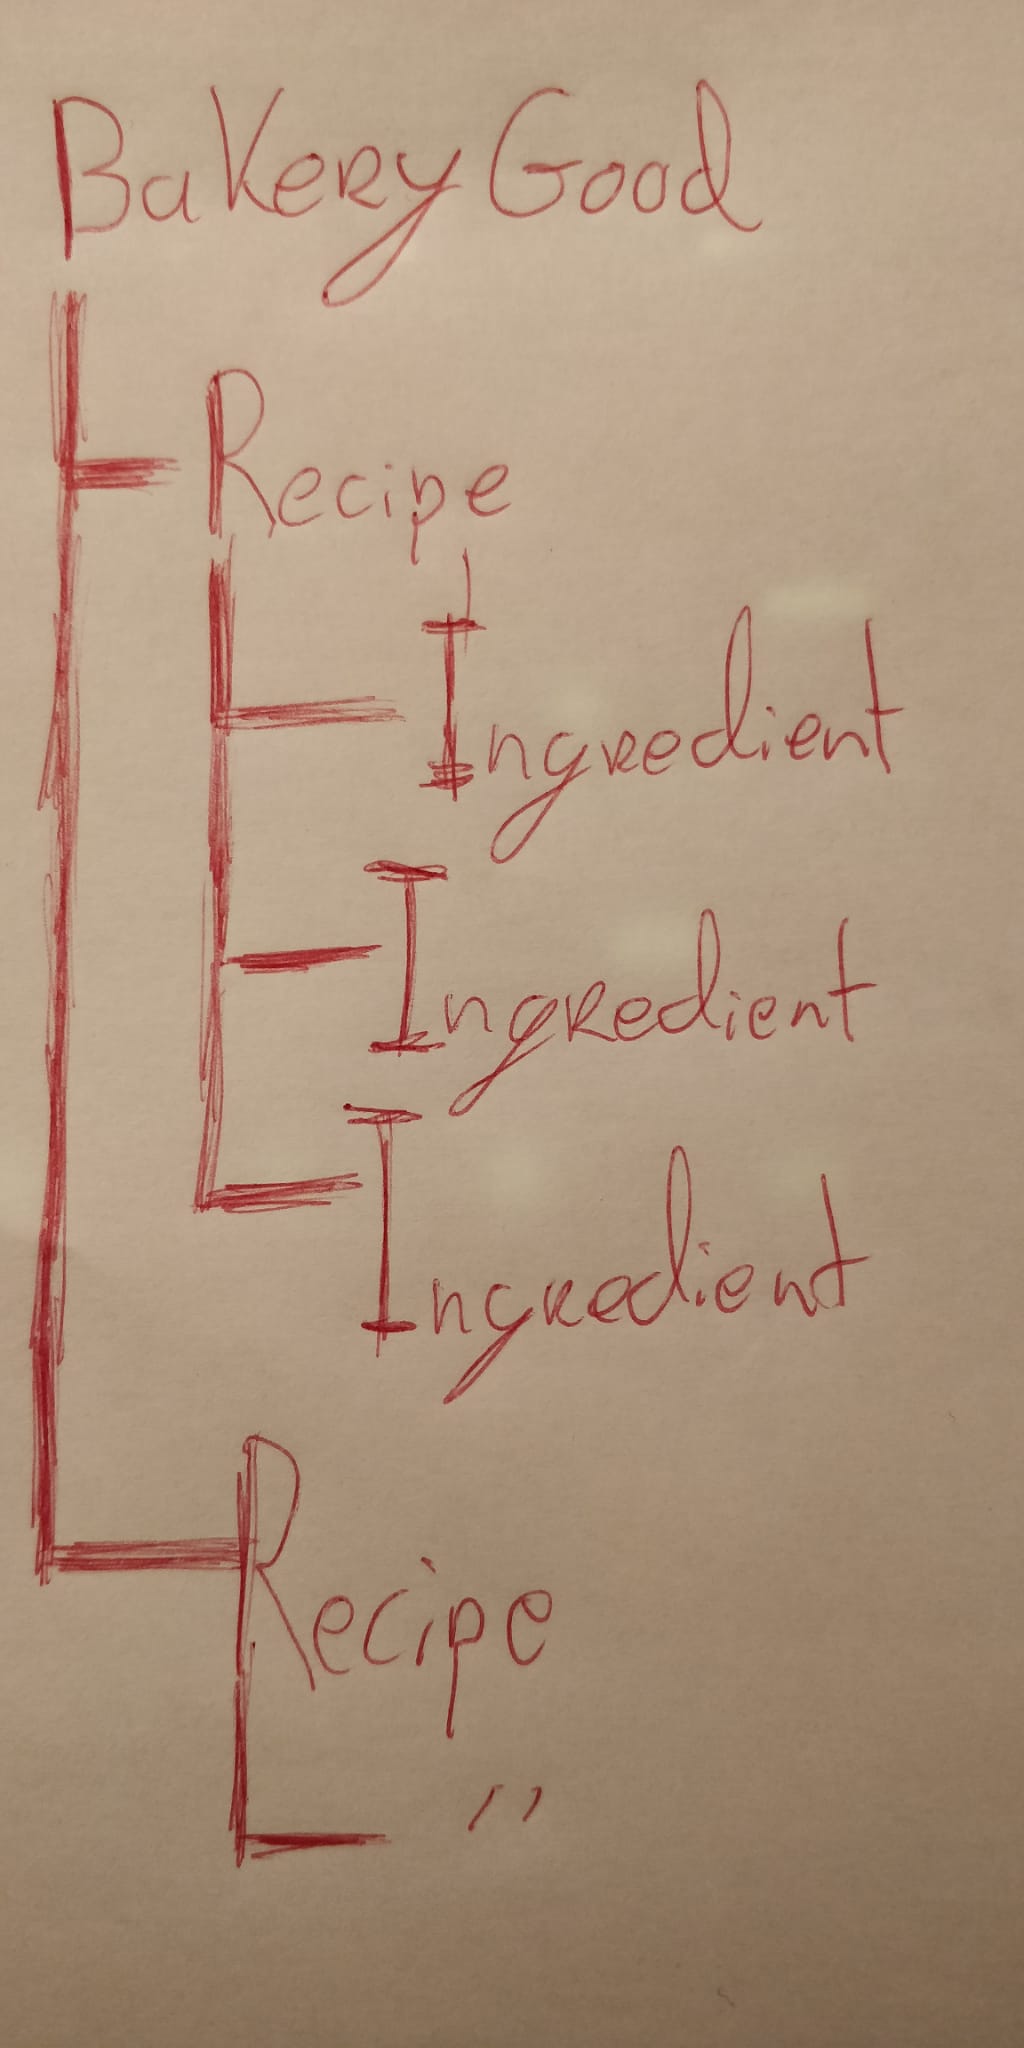 Bakery Good
Recipe
Ingredient
Ingredient
Ingredient
Recipe
''